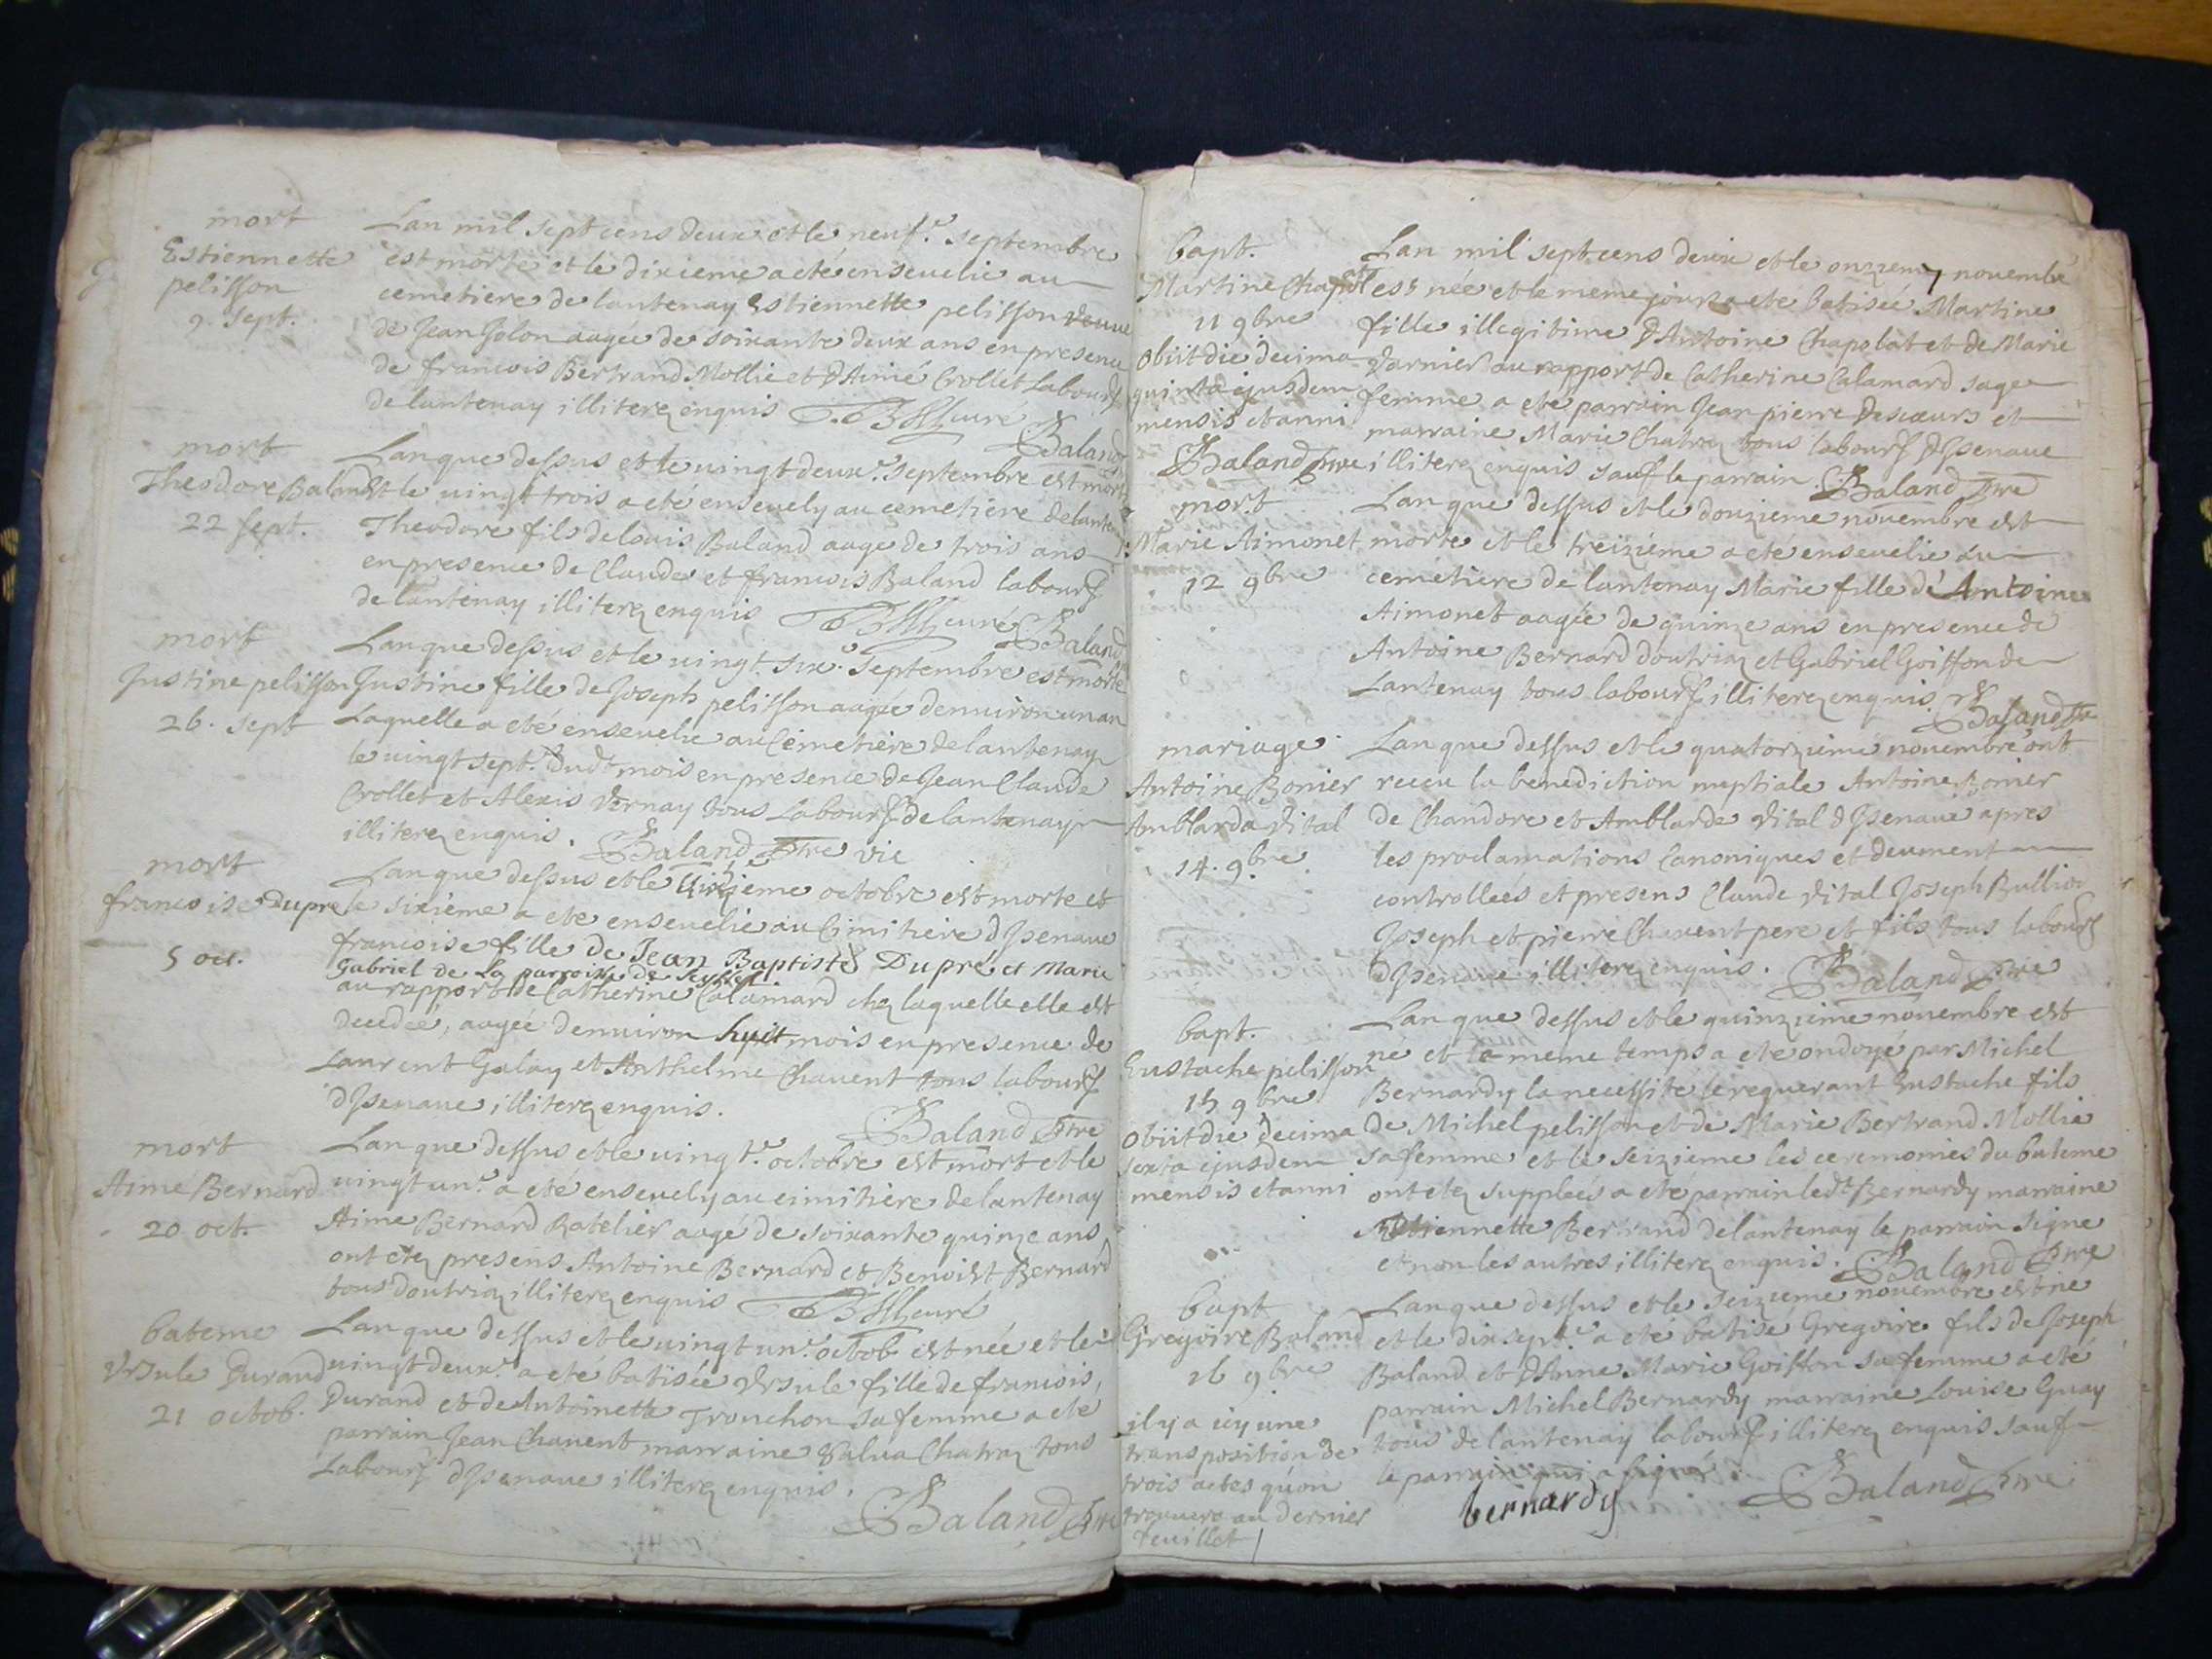 mort
Estiennette
pelisson
9. sept.
Lan mil sept cens deux et le neuf.e septembre
est morte et le dixieme a eté enseuelie au
cemetiere de lantenay Estiennette pelisson veuue
de Jean Jolon aagée de soixante deux ans en presence
de francois Bertrand Mollie et d'Aimé Crollet Labours
de lantenay illiterez enquis curé
Baland
mort
Theodore Baland
22 sept.
Lan que dessus et le uingt deux.e septembre est mort
et le uingt trois a eté enseuely au cemetiere de lantenay
Theodore fils de louis Baland aagé de trois ans
en presence de Claude et francois Baland labours
de lantenay illiterez enquis curé
Baland
mort
Justine pelisson
26. sept
Lan que dessus et le uingt six.e septembre est morte
Justine fille de Joseph pelisson aagée denuiron un an
Laquelle a eté enseuelie au Cemetiere de lantenay
le uingt sept.e dudt mois en presence de Jean Claude
Crollet et Alexis Vernay tous Labours de lantenay
illiterez enquis. Baland ptre vic
mort
francoise Dupre
5 oct.
Lan que dessus et le octobre est morte et
le sixieme a ete enseuelie au Cimitiere d'Jsenaue
francoise fille de Jean Baptiste Dupré et Marie
Gabriel de La parroisse de Seyssel
au rapport de Catherine Calamard chez laquelle elle est
decedeé, aageé denuiron huit mois en presence de
Laurent Galay et Anthelme Chauent tous labours
d'Jsenaue illiterez enquis.
Baland ptre
mort
Aimé Bernard
20 oct.
Lan que dessus et le uingt.e octobre est mort et le
uingt un.e a eté enseuely au cimitiere de lantenay
Aime Bernard Ratelier aagé de soixante quinze ans
ont etez presens Antoine Bernard et Benoist Bernard
tous doutriaz illiterez enquis curé
bateme
Vrsule Durand
21 octob.
Lan que dessus et le uingt un.e octob est née et le
uingt deux.e a eté batisée Vrsule fille de francois
Durand et de Antoinette Tronchon sa femme a eté
parrain Jean Chauent marraine Chatraz tous
Labours d'Jsenaue illiterez enquis.
Baland ptre
bapt.
Martine Chapolat
11 9bre
obiit die decima
quinta ejusdem
mensis et anni
Baland ptre
Lan mil sept cens deux et le onzieme novembre
est née et le meme jour a eté batisée Martine
fille illegitime d'Antoine Chapolat et de Marie
Varnier au rapport de Catherine Calamard sage
femme a eté parrain Jean pierre Descœurs et
marraine Marie Chatraz tous labours d'Jsenaue
illiterez enquis sauf le parrain. Baland ptre
mort
Marie Aimonet
12 9bre
Lan que dessus et le douzieme nouembre est
morte et le treizieme a eté enseuelie au
cemetiere de lantenay Marie fille de Antoine
Aimonet aagée de quinze ans en presence de
Antoine Bernard doutriaz et Gabriel Goisson de
Lantenay tous labours illiterez enquis.
Baland ptre
mariage
Antoine Bonier
Amblarda Vital
14. 9bre
Lan que dessus et le quatorzieme nouembre ont
receu la benediction nuptiale Antoine Bonier
de Chandore et Amblarde Vital d'Jsenaue apres
les proclamations Canoniques et deument
controlleés et presens Claude Vital Joseph Bullion
Joseph et pierre Chauent pere et fils tous labours
d'Jsenaue illiterez enquis. Baland ptre
bapt.
Eustache pelisson
15 9bre
obiit die decima
sexta ejusdem
mensis et anni
Lan que dessus et le quinzieme nouembre est
né et le meme temps a eté ondoyé par Michel
Bernardy la necessite le requerant Eustache fils
de Michel pelisson et de Marie Bertrand Mollie
sa femme et le seizieme les ceremonies du bateme
ont etez suppleés a eté parrain ledt Bernardy marraine
Estiennette Bertrand de lantenay le parrain signe
et non les autres illiterez enquis. Baland ptre
bapt
Gregoire Baland
16 9bre
il y a icy une
transposition de
trois actes qu'on
trouuera au dernier
feuillet
Lan que dessus et le seizieme nouembre est né
et le dix sept.e a eté batisé Gregoire fils de Joseph
Baland et d'Anne Marie Goisson sa femme a eté
parrain Michel Bernardy marraine Louise Guay
tous de lantenay labours illiterez enquis sauf
le parrain qui a signé.
bernardy
Baland ptre